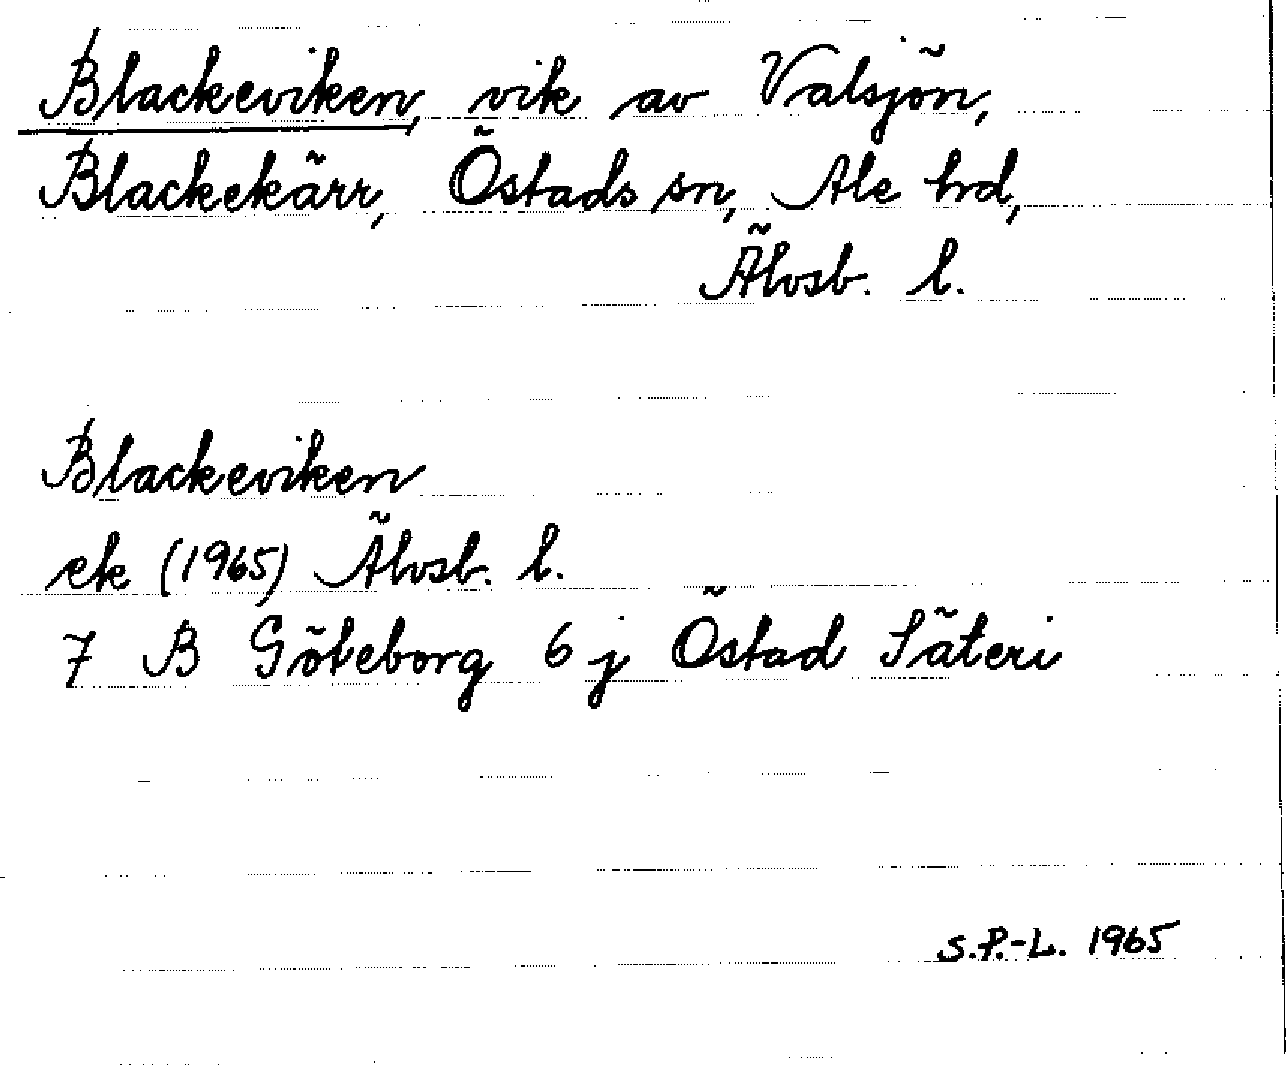 Blackeviken, vik av Valsjön,
Blackekärr, Östads sn, Ale hrd,
Älvsb. l.
Blackeviken
ek (1965) Älvsb. l.
7 B Göteborg 6 j Östad Säteri
S.P.-L. 1965